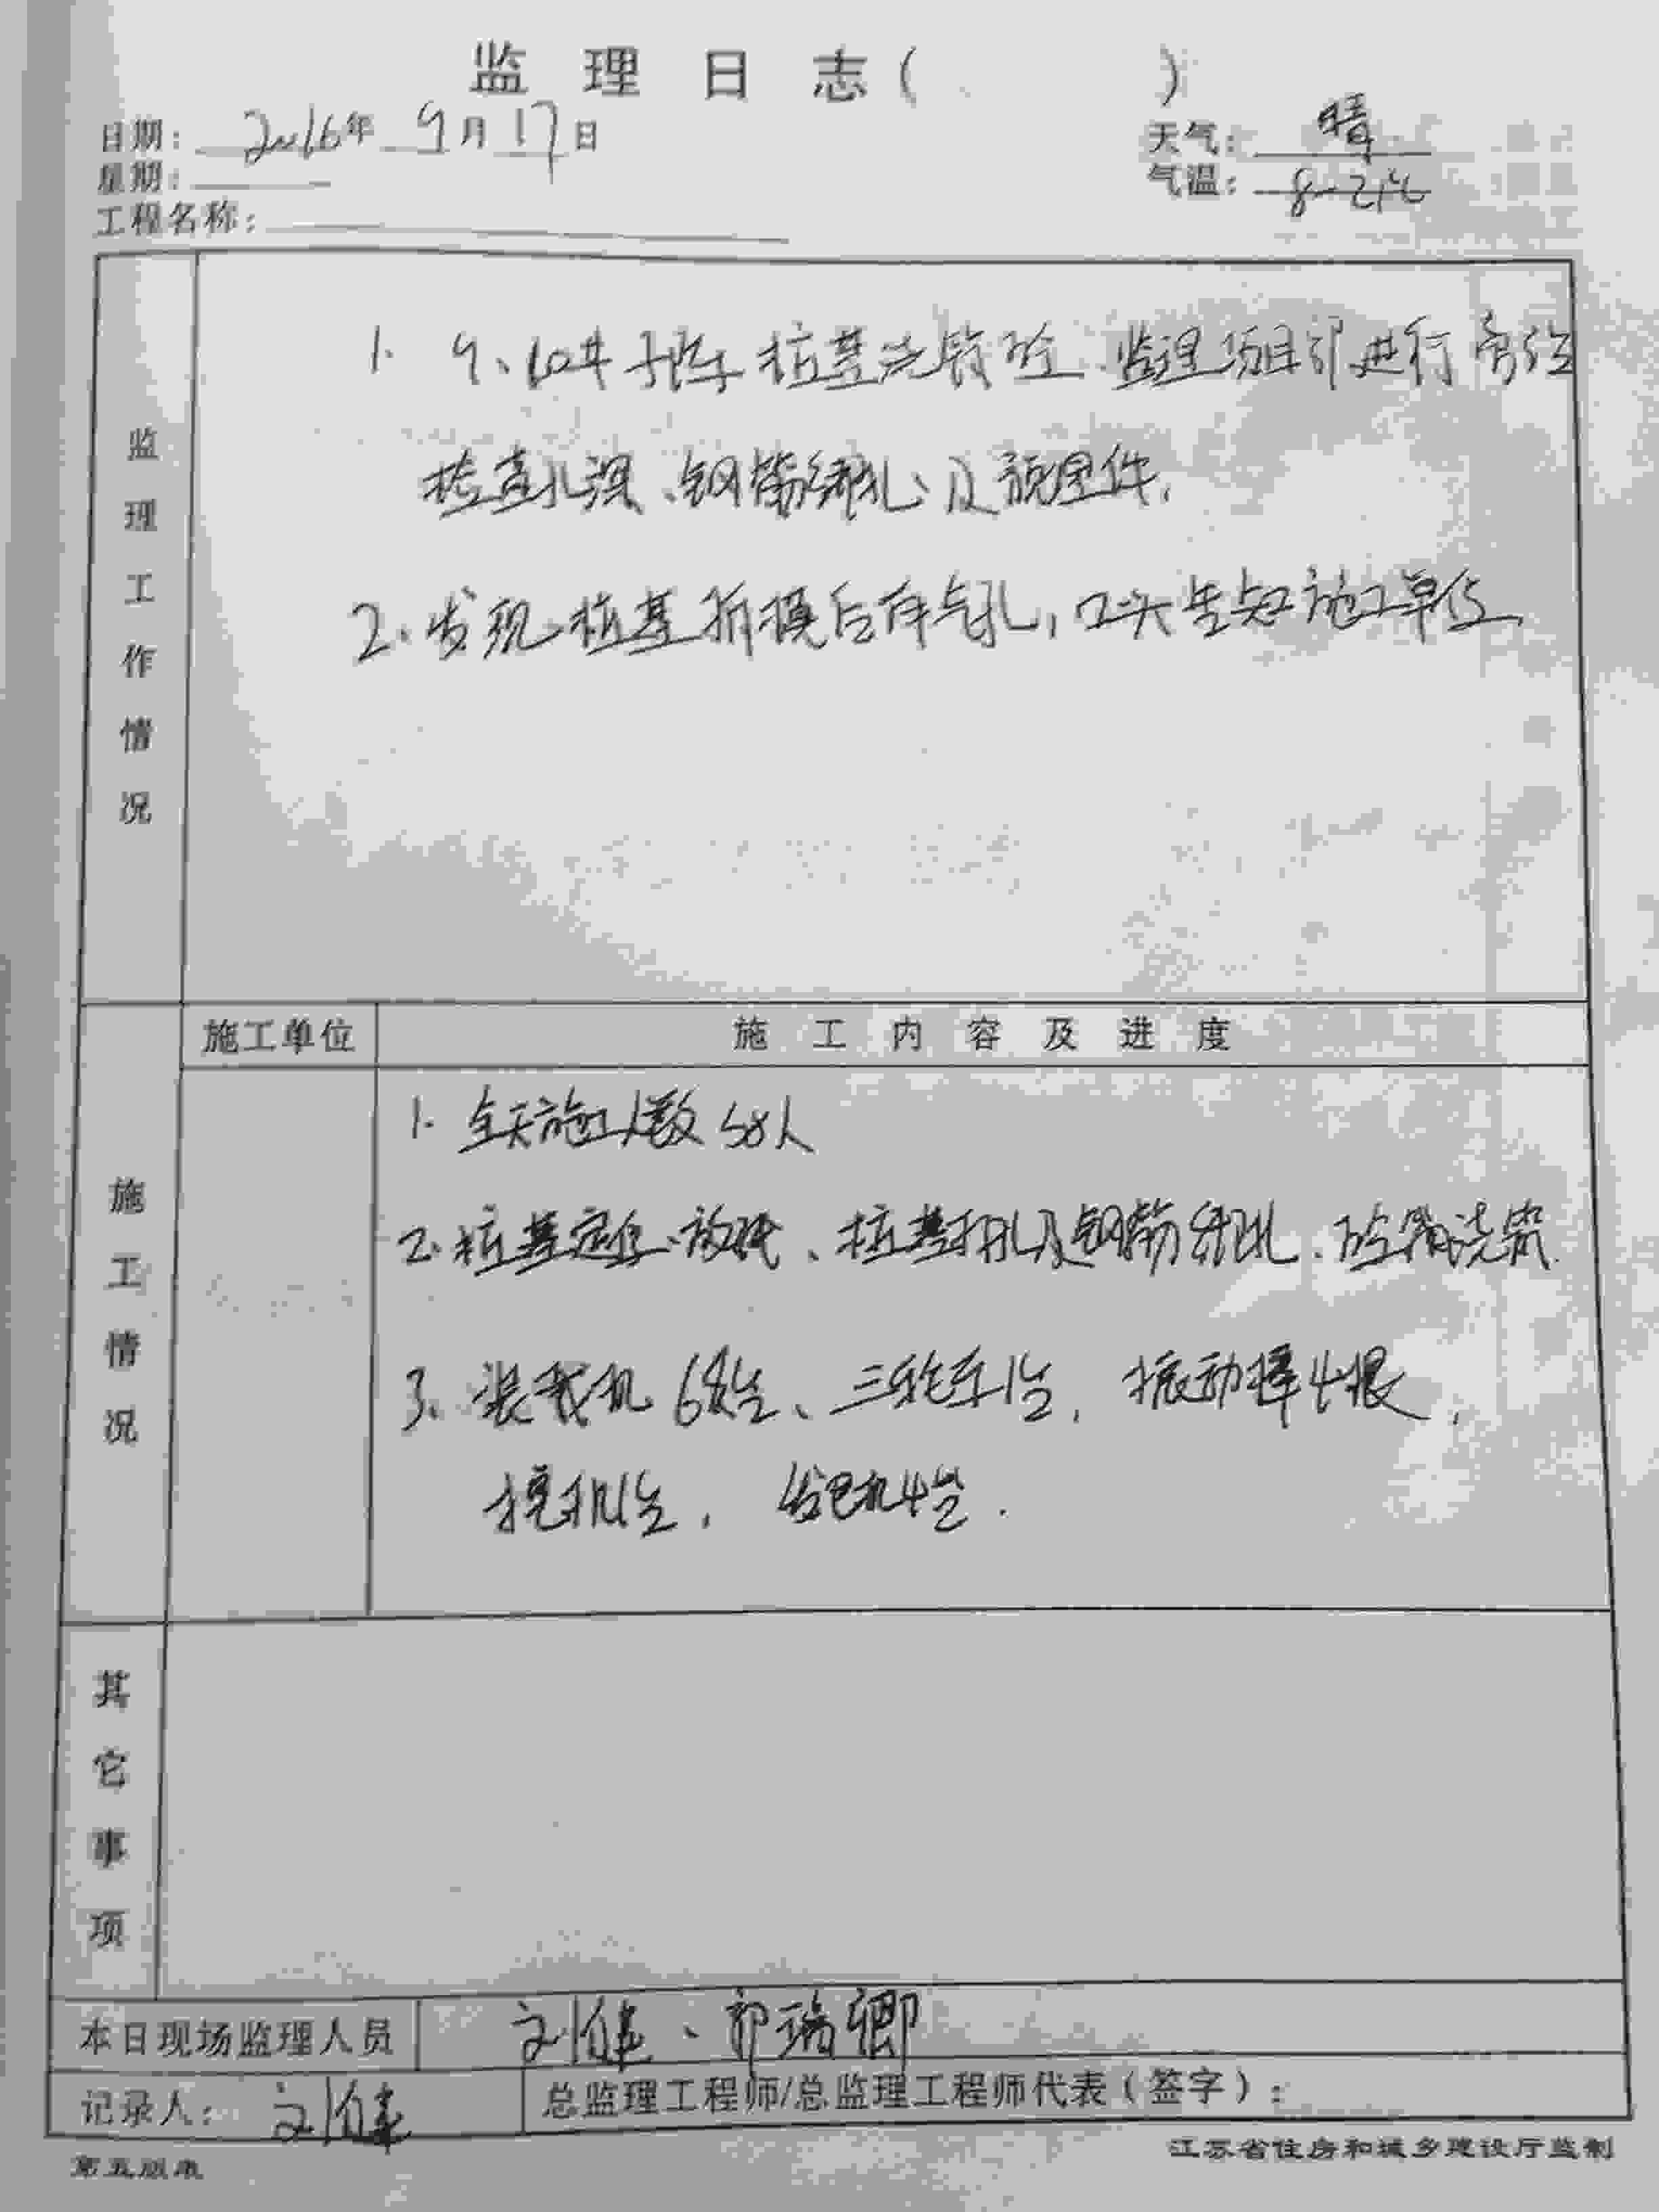 监理日志( )
日期: 2016年 9月 17日
天气: 晴
星期:
气温: 8-21℃
工程名称:
监理工作情况
1. 9、10# 子阵 桩基浇筑砼、监理项目部进行旁站
检查孔深、钢筋绑扎、及预埋件.
2. 发现桩基拆模后有气孔,口头告知施工单位.
施工情况
施工单位
施工内容及进度
1. 全天施工人数58人
2. 桩基定位放线、桩基打孔及钢筋绑扎、砼浇筑.
3. 装载机6台、三轮车1台, 振动棒4根,
挖机1台, 发电机4台.
其它事项
本日现场监理人员 刘健、郭瑞卿
记录人: 刘健 总监理工程师/总监理工程师代表(签字):
江苏省住房和城乡建设厅监制